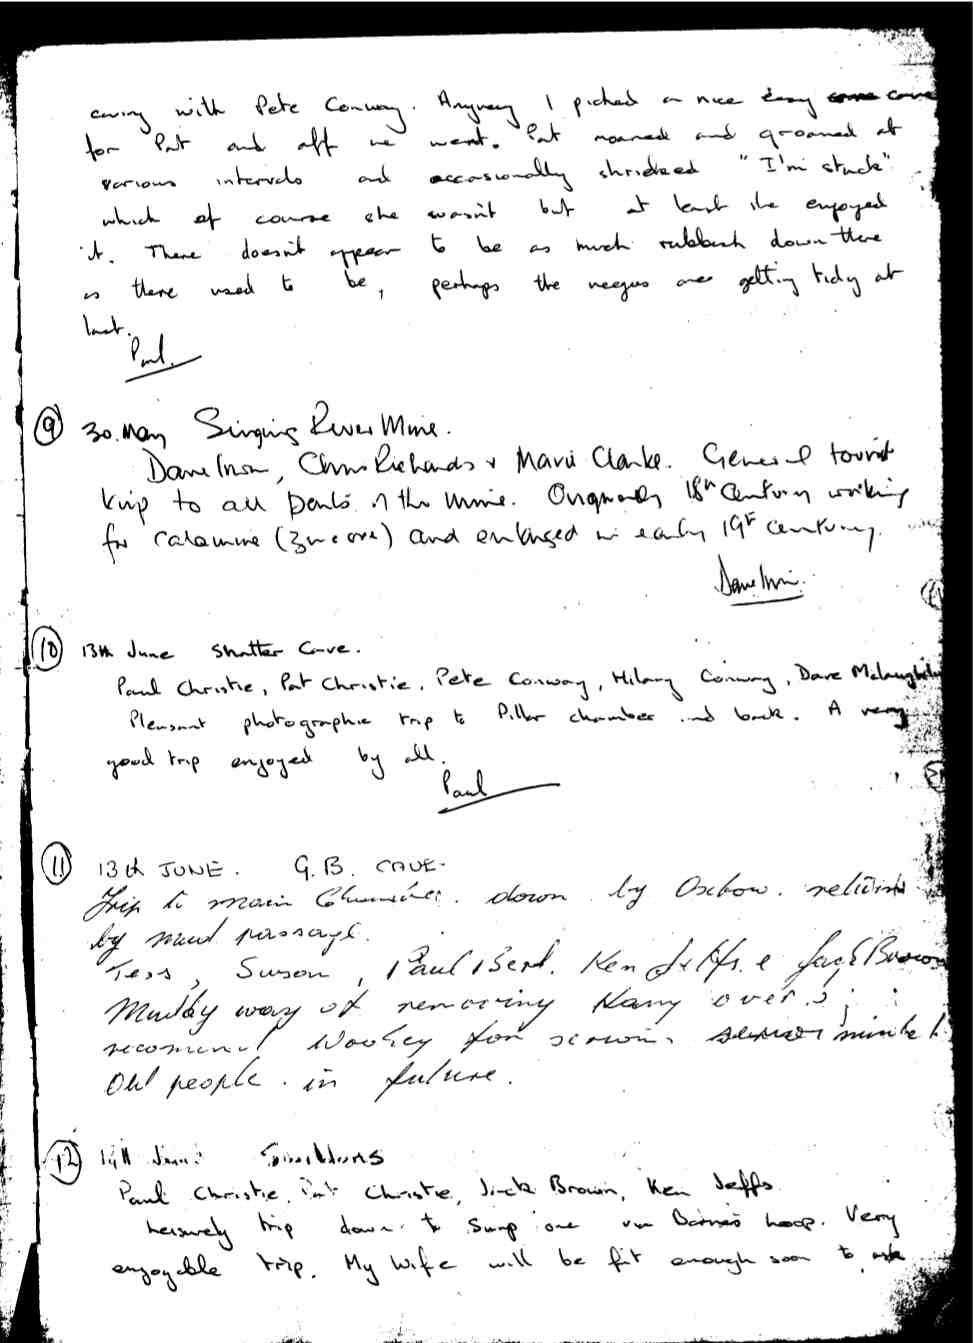 caving with Pete Conway. Anyway I picked a nice easy cave
for Pat and off we went. Pat moaned and groaned at
various intervals and occasionally shrieked "I'm stuck"
which of course she wasn't but at least she enjoyed
it. There doesn't appear to be as much rubbish down there
as there used to be, perhaps the are getting tidy at
last.
Paul
9 30. May Singing River Mine.
Dave Irwin, Chris Richards & Mavis Clarke. General tourist
trip to all parts of the mine. Originally 18th Century working
for calamine (zinc ore) and enlarged in early 19th century.
Dave Irwin
10 13th June Shatter Cave.
Paul Christie, Pat Christie, Pete Conway, Hilary Conway, Dave McLaughlin
Pleasant photographic trip to Pillar chamber and back. A very
good trip enjoyed by all.
Paul
11 13th JUNE. G.B. CAVE.
Trip to main Chamber. down by Oxbow. return
by mud passage.
Tess, Suson, Paul Bert. Ken Jeffs. & Jack Brown
Muddy way of removing Hang overs;
recomend Wookey for senior minded
Old people. in future.
12 14th June Swildons
Paul Christie, Pat Christie, Jack Brown, Ken Jeffs
Leisurely trip down to Sump one via Barnes Loop. Very
enjoyable trip. My wife will be fit enough soon to